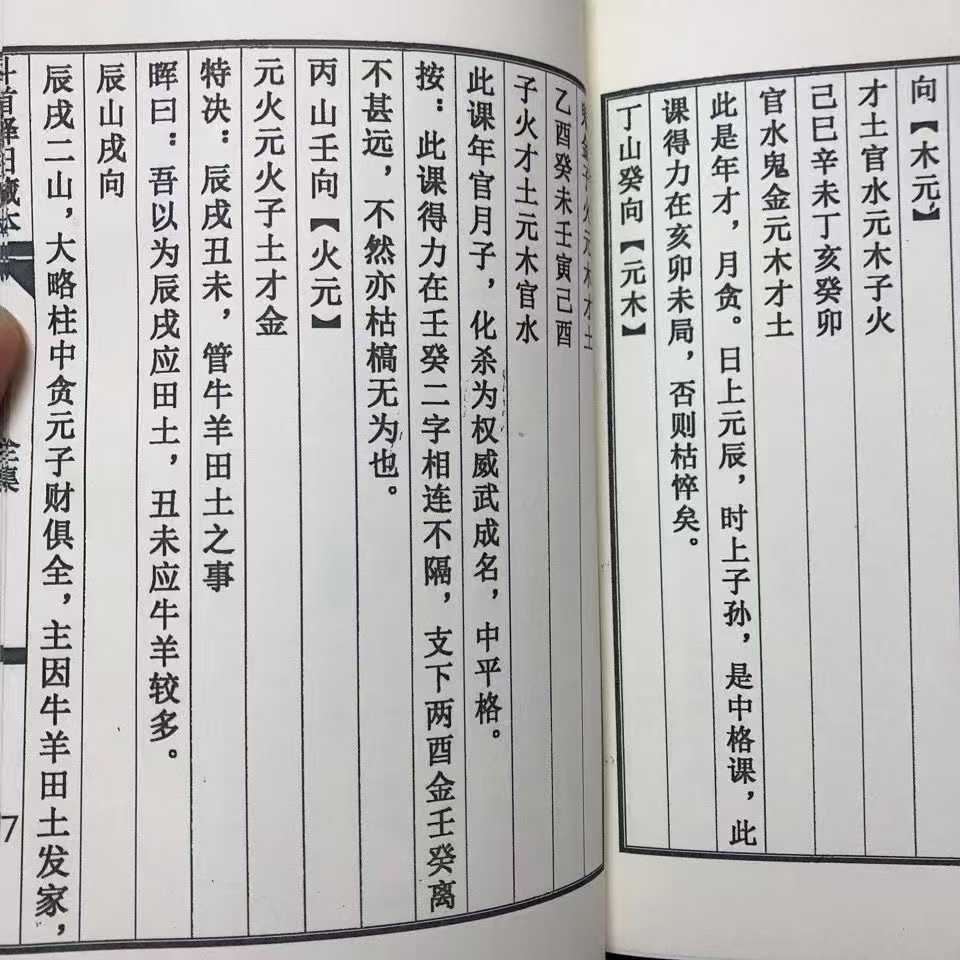 向【木元】
才土官水元木子火
己巳辛未丁亥癸卯
官水鬼金元木才土
此是年才，月贪。日上元辰，时上子孙，是中格课，此
课得力在亥卯未局，否则枯悴矣。
丁山癸向【元木】
金子火元木才土
乙酉癸未壬寅己酉
子火才土元木官水
此课年官月子，化杀为权威武成名，中平格。
按：此课得力在壬癸二字相连不隔，支下两酉金壬癸离
不甚远，不然亦枯槁无为也。
丙山壬向【火元】
元火元火子土才金
特决：辰戌丑未，管牛羊田土之事
晖曰：吾以为辰戌应田土，丑未应牛羊较多。
辰山戌向
辰戌二山，大略柱中贪元子财俱全，主因牛羊田土发家，
藏本
全集
7